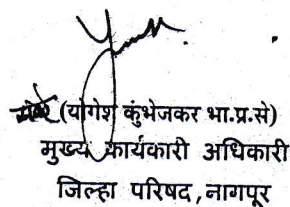 (योगेश कुंभेजकर भा.प्र.से)
मुख्य कार्यकारी अधिकारी
जिल्हा परिषद,नागपूर